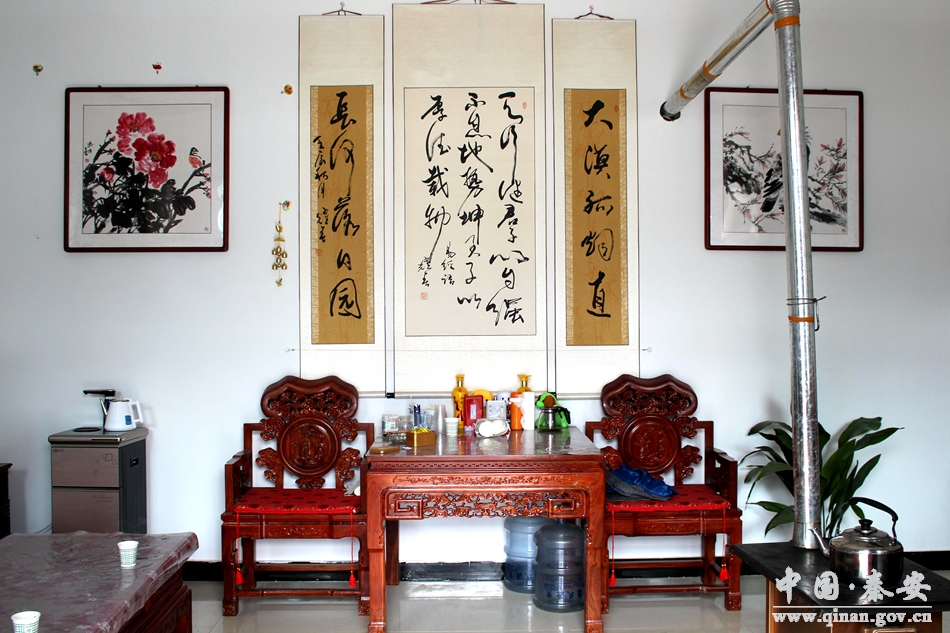 大漠孤烟直
天行健君子以自强
不息地勢坤君子以
厚德載物
易经语
長河落日圆
中国·秦安
www.qinan.gov.cn